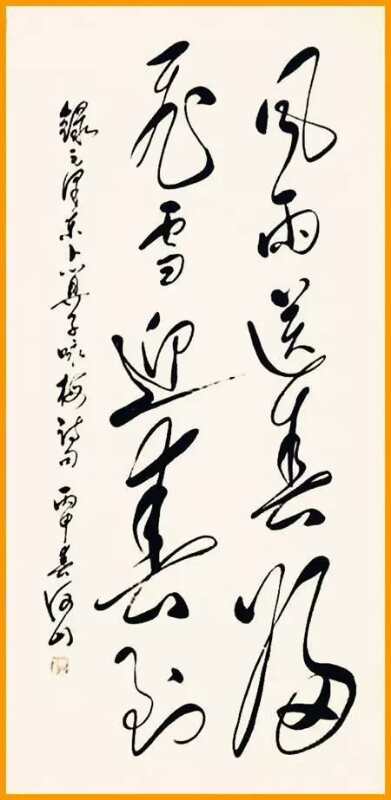 风雨送春归
飞雪迎春到
录毛泽东卜算子咏梅诗句 丙申春河山